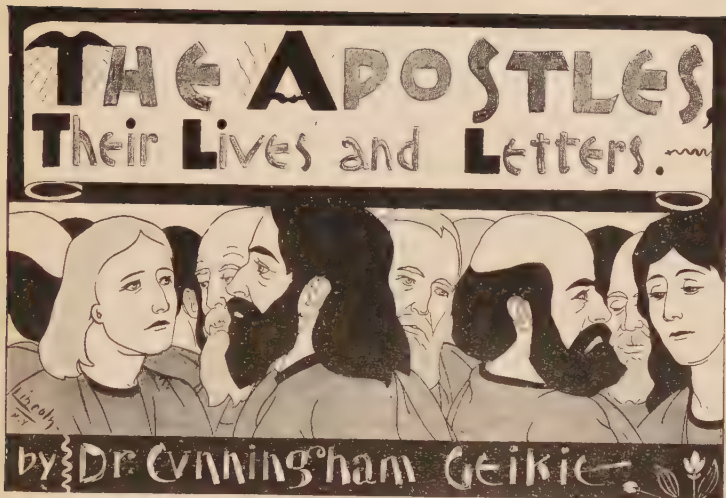 THE APOSTLES,
Their Lives and Letters.
Lincoln.
N.Y
by Dr. CVNNINGHAM GEIKIE